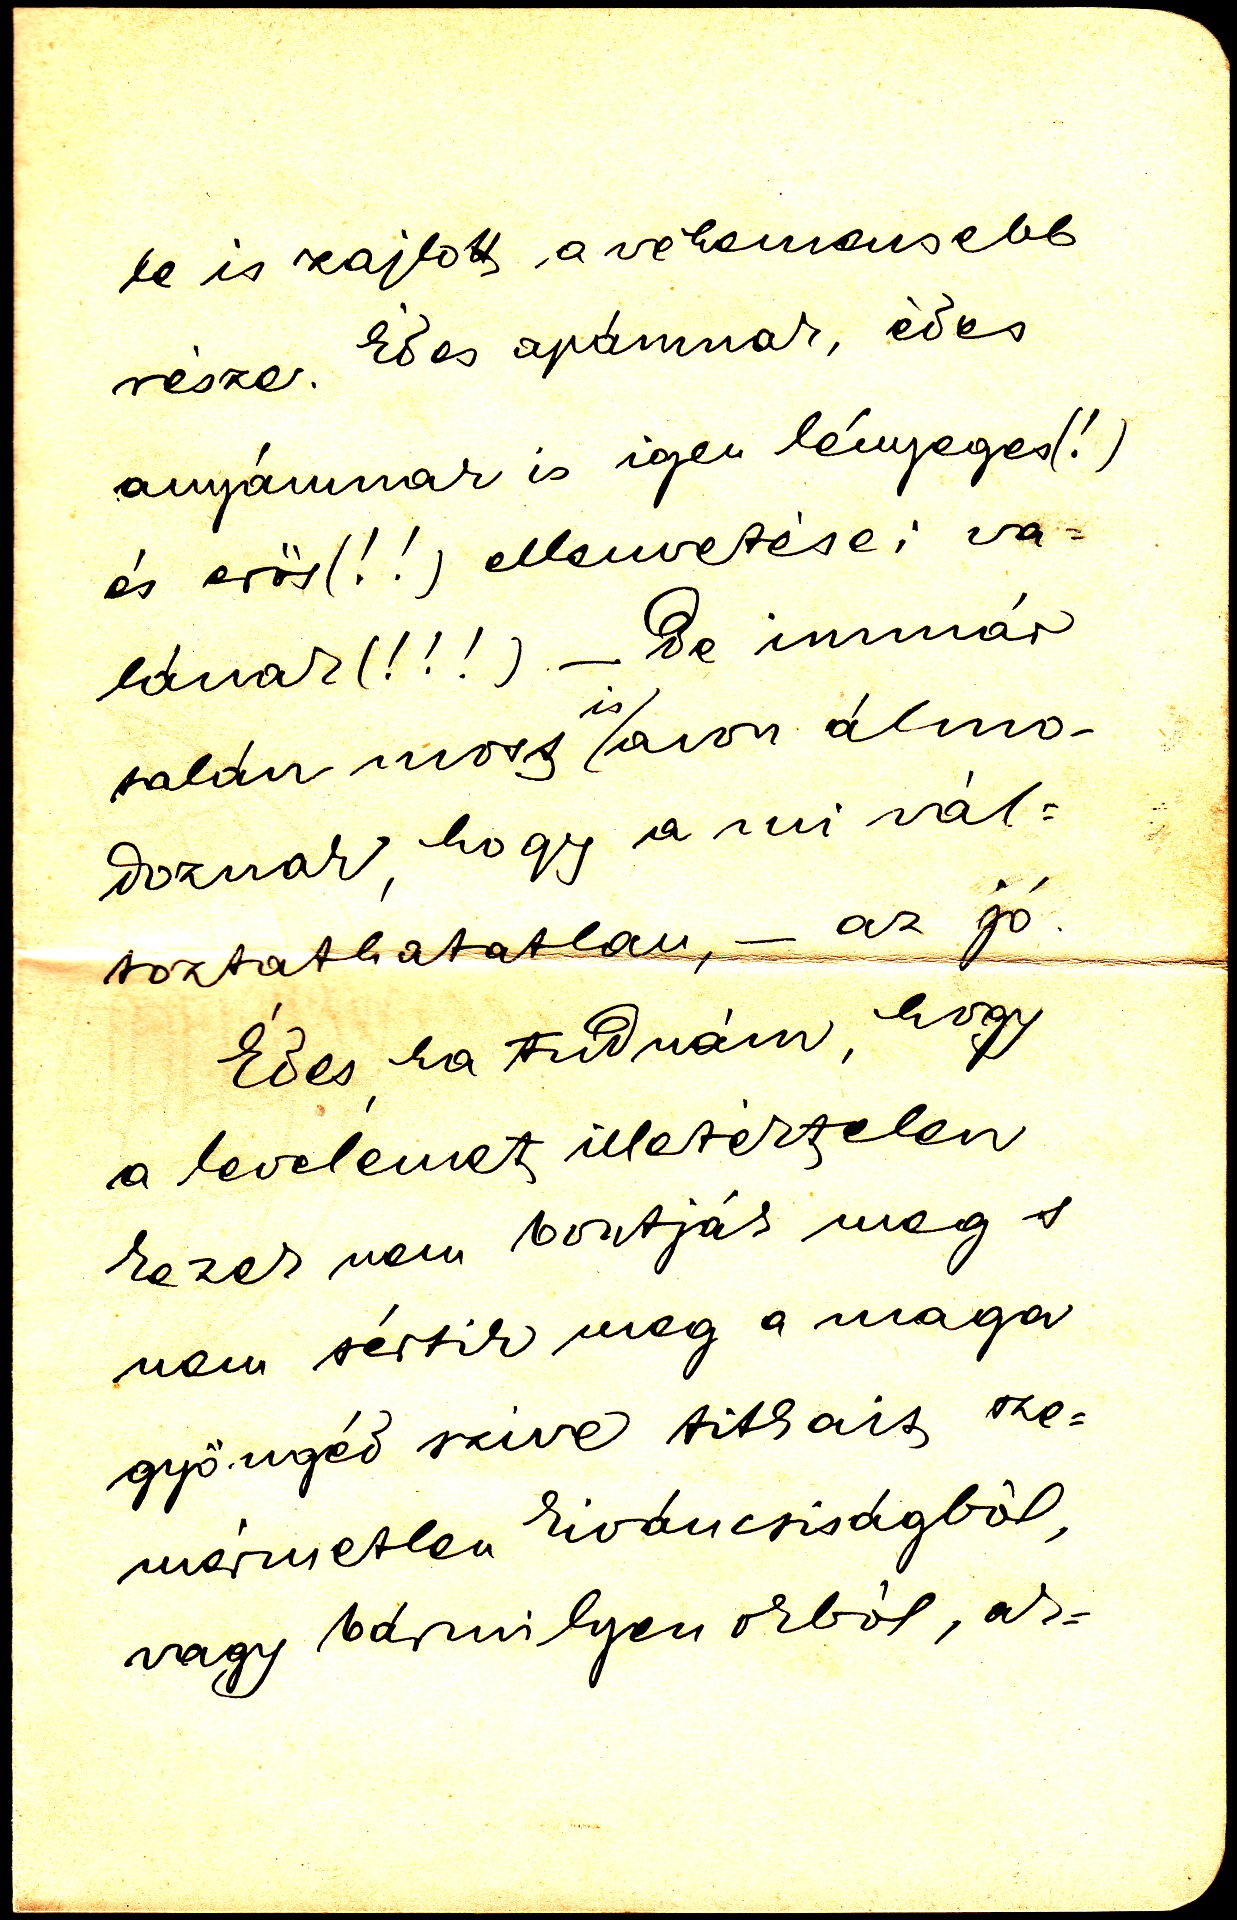 le is zajlott a vehemensebb
része. Édes apámnak, édes
anyámnak is igen lényeges(!)
és erös(!!) ellenvetései va=
lának(!!!) — De immár
talán most is avon álmo-
doznak, hogy a mi vál=
toztathatatlan, — az jó.
Édes, ha tudnám, hogy
a levelemet illetéktelen
kezek nem bontják meg s
nem sértik meg a maga
gyöngéd szive titkait sze=
mérmetlen kiváncsiságból,
vagy bármilyen okból, ak=